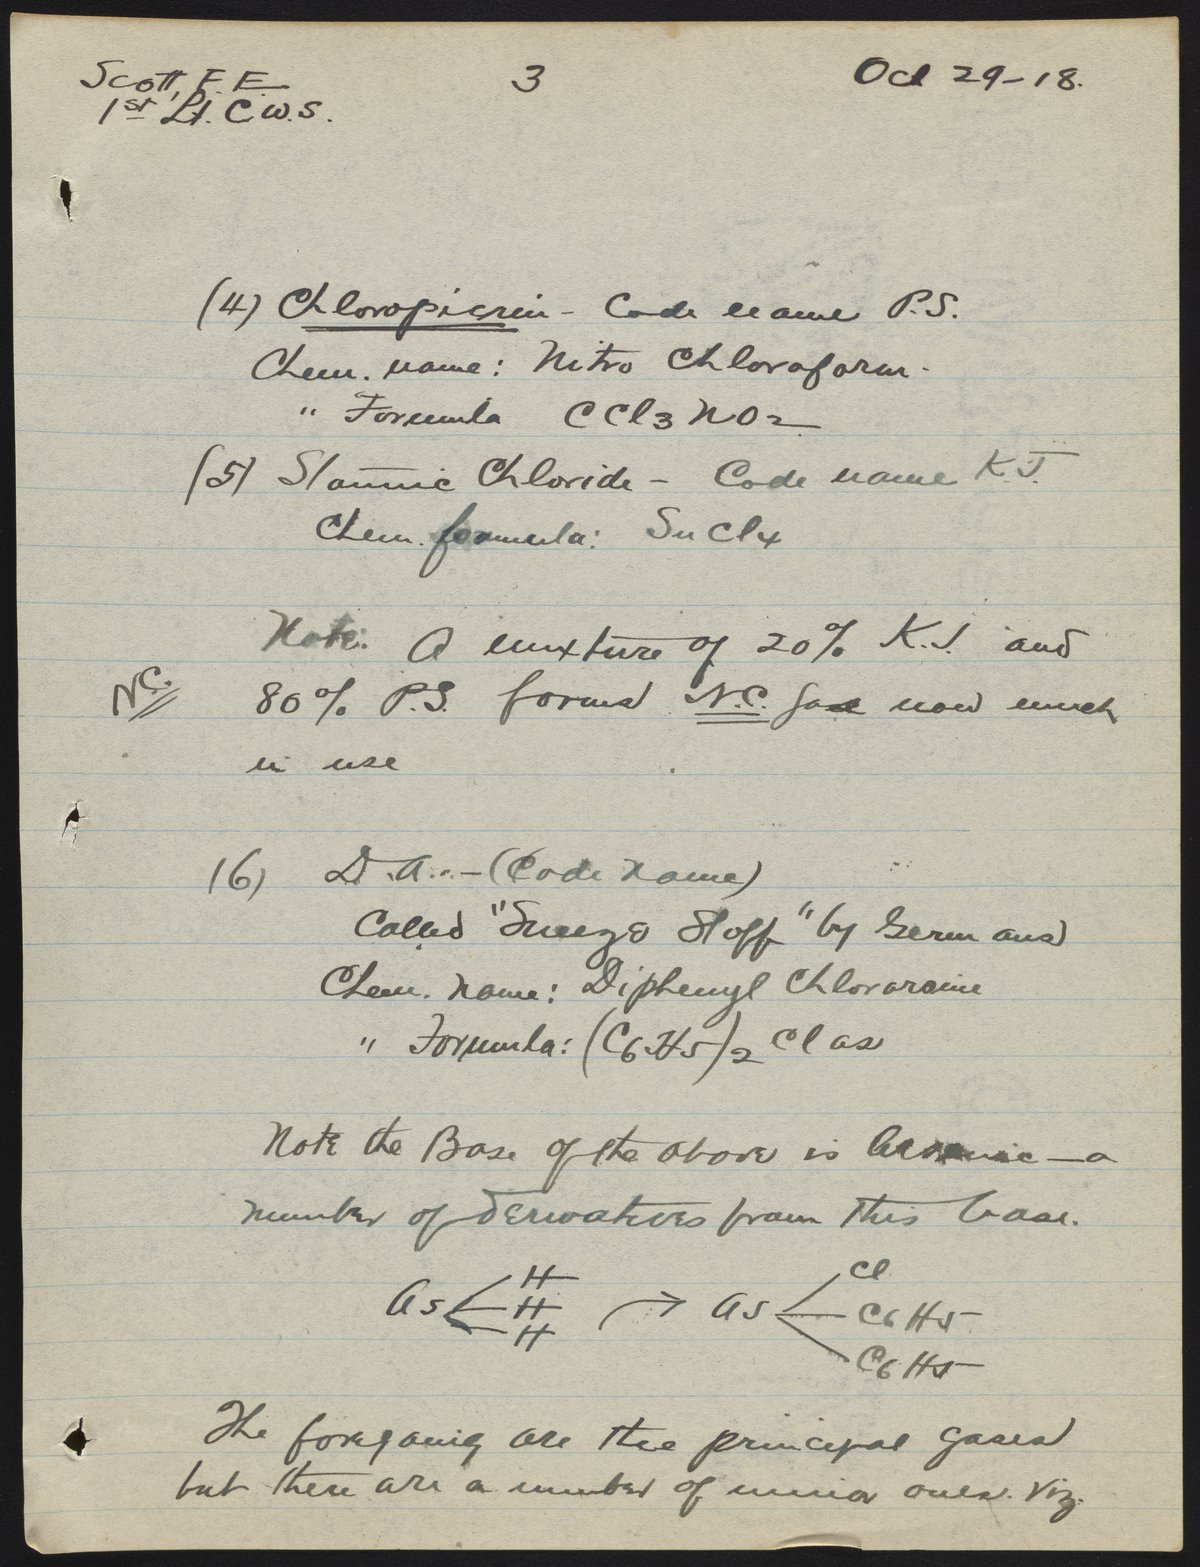 Scott, F. E.
3
Oct 29-18.
1st Lt. C.W.S.
(4) Chloropicrin - Code name P.S.
Chem. name: Nitro Chloroform.
" Formula CCl3NO2
(5) Stannic Chloride - Code name K.J.
Chem. formula: SnCl4
Note: A mixture of 20% K.J. and
N.C.
80% P.S. forms N.C. gas now much
in use
(6) D.A. - (Code name)
Called "Sneeze Stoff" by Germans
Chem. name: Diphenyl Chlorarsine
" Formula: (C6H5)2 Cl As
Note the Base of the above is Arsenic - a
number of derivatives from this base.
As H H H → As Cl C6H5 C6H5
The foregoing are the principal gases
but there are a number of minor ones. Viz.